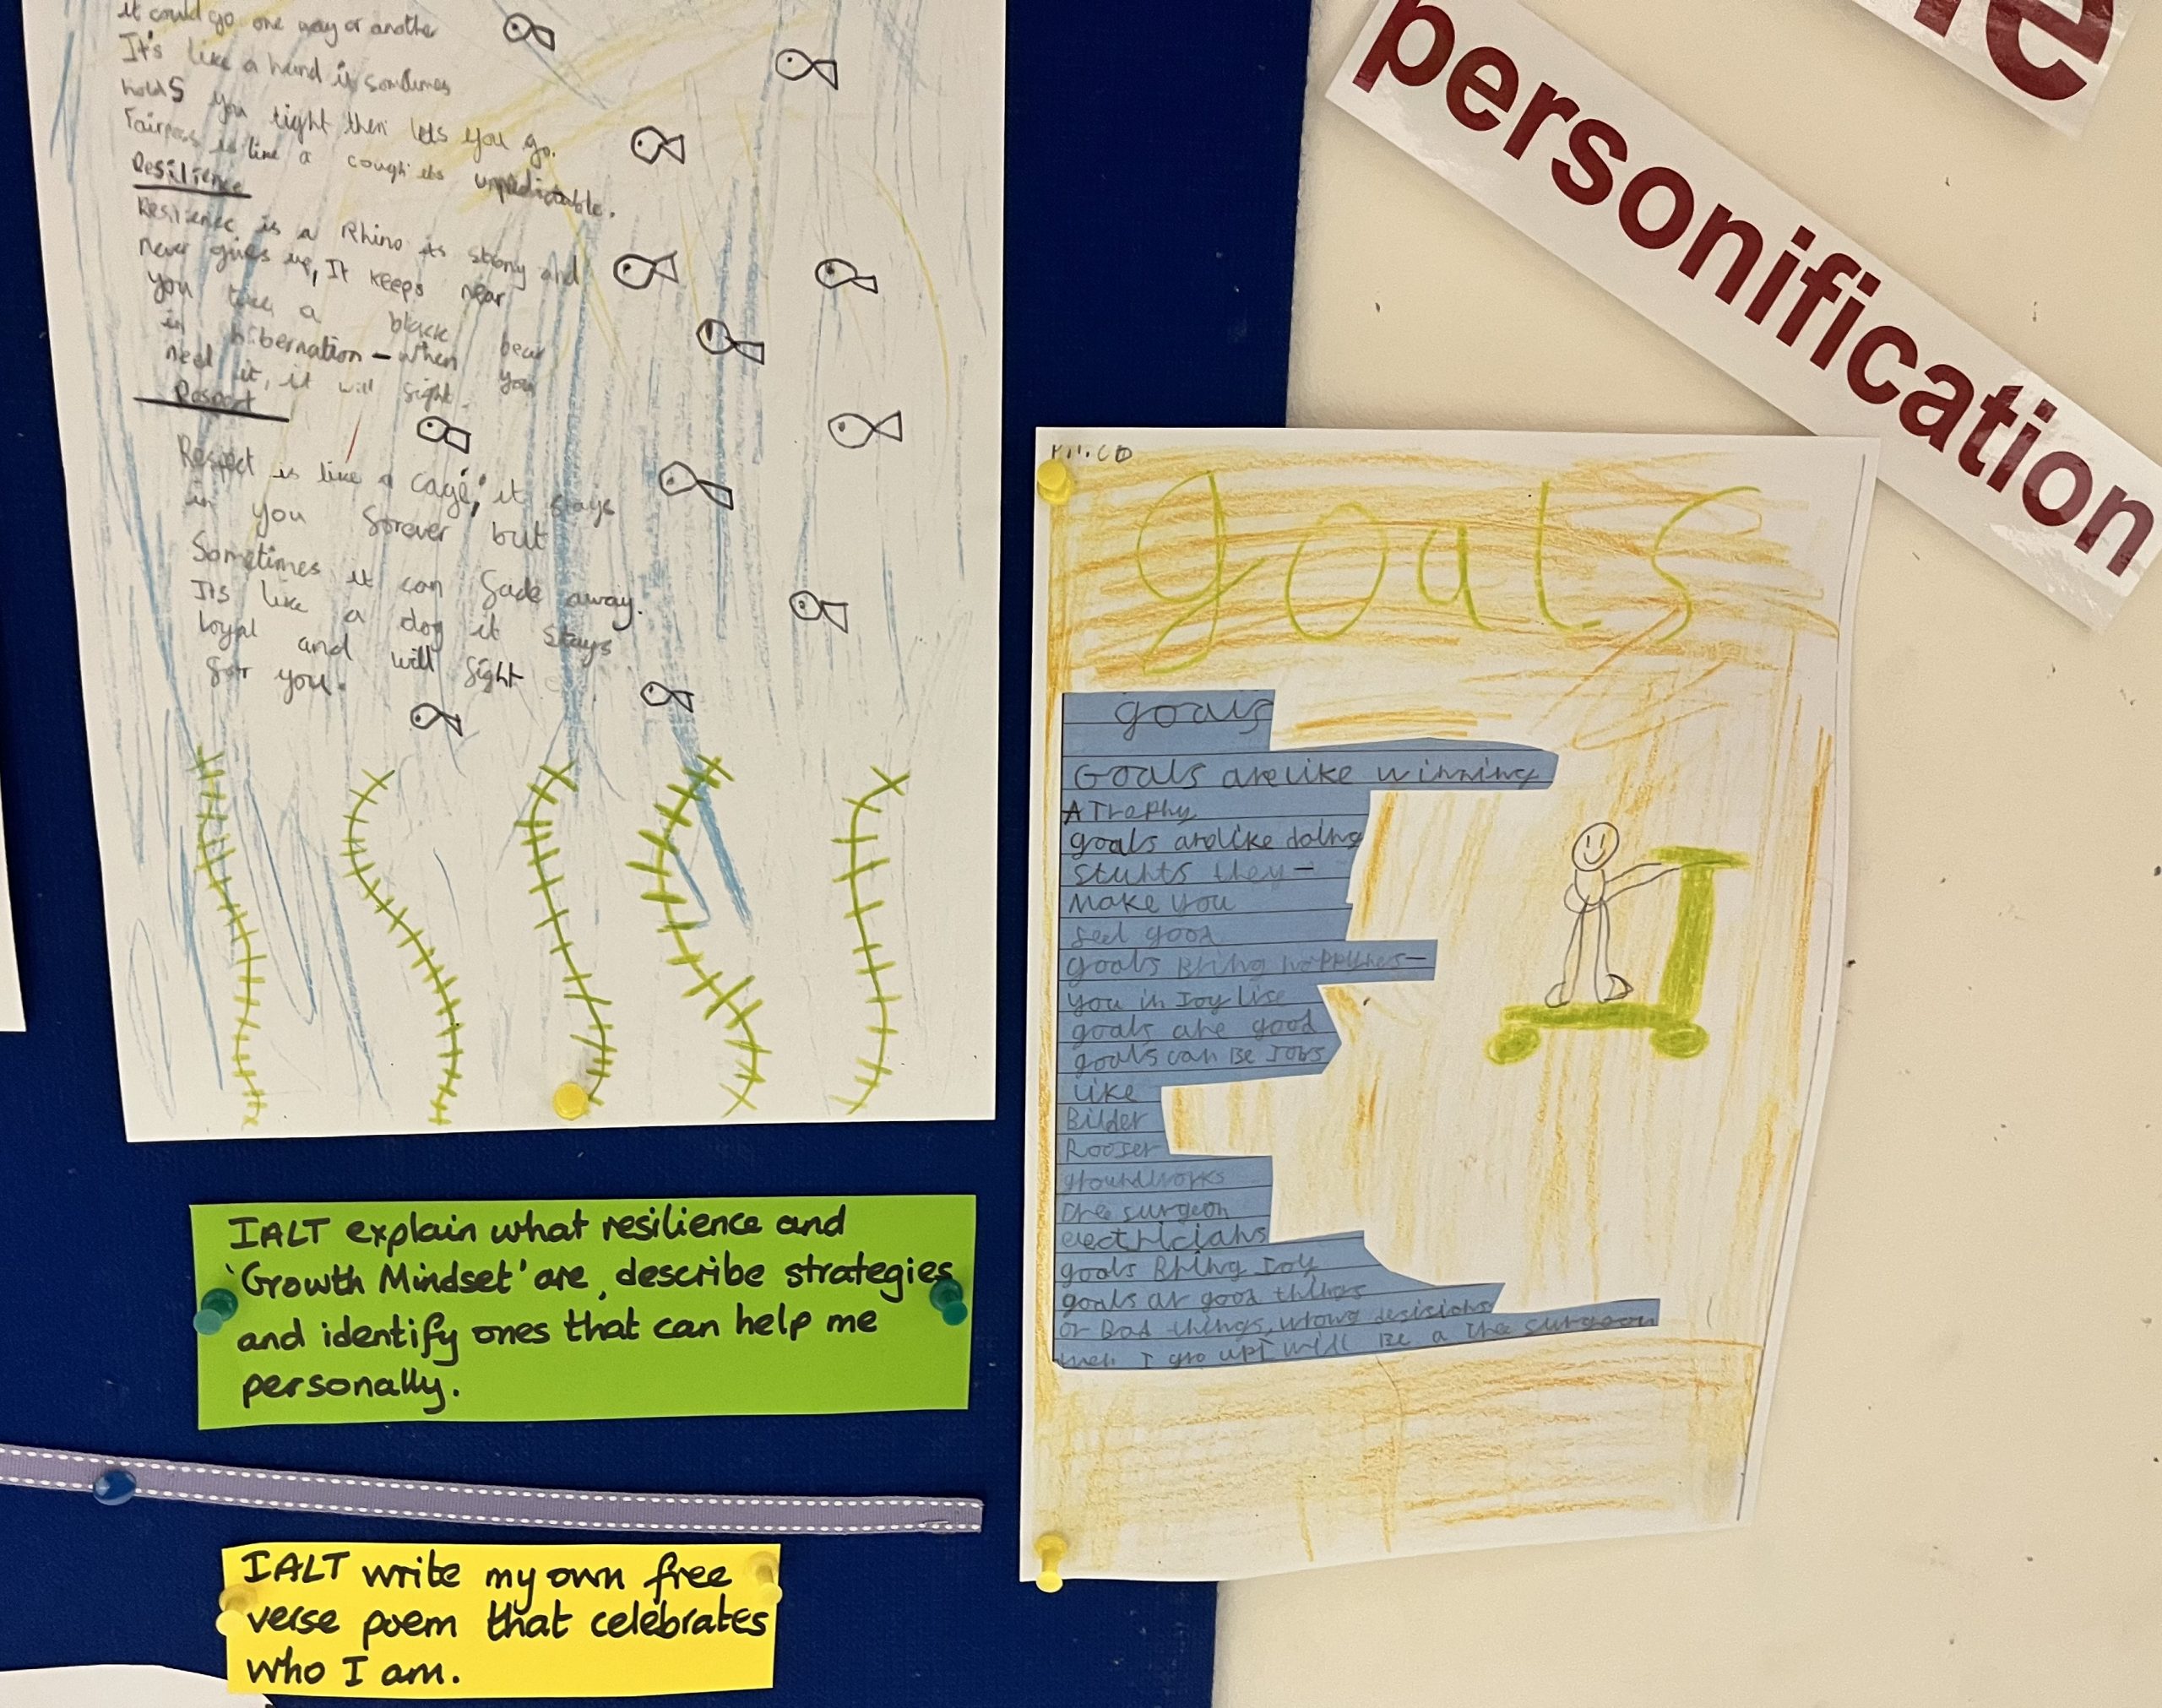 it could go one way or another
It's like a hand it sometimes
holds you tight then lets you go.
Fairness is like a cough its unpredictable.
Resilience
Resilience is a Rhino its strong and
never gives up, It keeps near
you like a black bear
in hibernation - when you
need it, it will fight.
Respect
Respect is like a cage; it stays
in you forever but
Sometimes it can fade away.
Its like a dog it stays
loyal and will fight
for you.
IALT explain what resilience and
'Growth Mindset' are, describe strategies
and identify ones that can help me
personally.
IALT write my own free
verse poem that celebrates
who I am.
personification
goals
goals
Goals are like winning
A Trophy
goals are like doing
stunts they-
Make you
feel good
goals Bring happynes-
you in Joy like
goals are good
goals can Be Jobs
like
Bilder
Roofer
groundworks
tree surgeon
electricians
goals Bring Joy
goals ar good things
or Bad things, wrong desisions
wen I gro up I will Be a tree surgeon